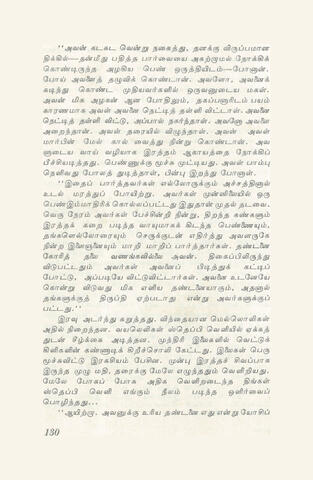 "அவன் கடகட வென்று நகைத்து, தனக்கு விருப்பமான
திக்கில்—தன்மீது பதித்த பார்வையை அகற்றாமல் நோக்கிக்
கொண்டிருந்த அழகிய பெண் ஒருத்தியிடம்—போனான்.
போய் அவளைத் தழுவிக் கொண்டான். அவளோ, அவனைக்
கடிந்து கொண்ட முதியவர்களில் ஒருவனுடைய மகள்.
அவன் மிக அழகன் ஆன போதிலும், தகப்பனாரிடம் பயம்
காரணமாக அவள் அவனை நெட்டித் தள்ளி விட்டாள். அவனை
நெட்டித் தள்ளி விட்டு, அப்பால் நகர்ந்தாள். அவனோ அவளை
அறைந்தான். அவள் தரையில் விழுந்தாள். அவன் அவள்
மார்பின் மேல் கால் வைத்து நின்று கொண்டான். அவ
ளுடைய வாய் வழியாக இரத்தம் ஆகாயத்தை நோக்கிப்
பீச்சியடித்தது. பெண்ணுக்கு மூச்சு முட்டியது. அவள் பாம்பு
நெளிவது போலத் துடித்தாள், பின்பு இறந்து போனாள்.
"இதைப் பார்த்தவர்கள் எல்லோருக்கும் அச்சத்தினால்
உடல் மரத்துப் போயிற்று. அவர்கள் முன்னிலையில் ஒரு
பெண் இம்மாதிரிக் கொல்லப்பட்டது இதுதான் முதல் தடவை.
வெகு நேரம் அவர்கள் பேச்சின்றி நின்று, திறந்த கண்களும்
இரத்தக் கறை படிந்த வாயுமாகக் கிடந்த பெண்ணையும்,
தங்களெல்லோரையும் செருக்குடன் எதிர்த்து அவளருகே
நின்ற இளைஞனையும் மாறி மாறிப் பார்த்தார்கள். தண்டனை
கோரித் தலை வணங்கவில்லை அவன். திகைப்பிலிருந்து
விடுபட்டதும் அவர்கள் அவனைப் பிடித்துக் கட்டிப்
போட்டு, அப்படியே விட்டுவிட்டார்கள். அவனை உடனேயே
கொன்று விடுவது மிக எளிய தண்டனையாகும், அதனால்
தங்களுக்குத் திருப்தி ஏற்படாது என்று அவர்களுக்குப்
பட்டது."
இரவு அடர்ந்து கறுத்தது, விந்தையான மெல்லொலிகள்
அதில் நிறைந்தன. வயலெலிகள் ஸ்தெப்பி வெளியில் ஏக்கத்
துடன் சீழ்க்கை அடித்தன. முந்திரி இலைகளில் வெட்டுக்
கிளிகளின் கண்ணாடிக் கிறீச்சொலி கேட்டது. இலைகள் பெரு
மூச்சுவிட்டு இரகசியம் பேசின. முன்பு இரத்தச் சிவப்பாக
இருந்த முழு மதி, தரைக்கு மேலே எழுந்ததும் வெளிறியது,
மேலே போகப் போக அதிக வெளிறடைந்த திங்கள்
ஸ்தெப்பி வெளி எங்கும் நீலம் படிந்த ஒளிர்வைப்
பொழிந்தது...
"ஆயிற்று, அவனுக்கு உரிய தண்டனை எது என்று யோசிப்
130